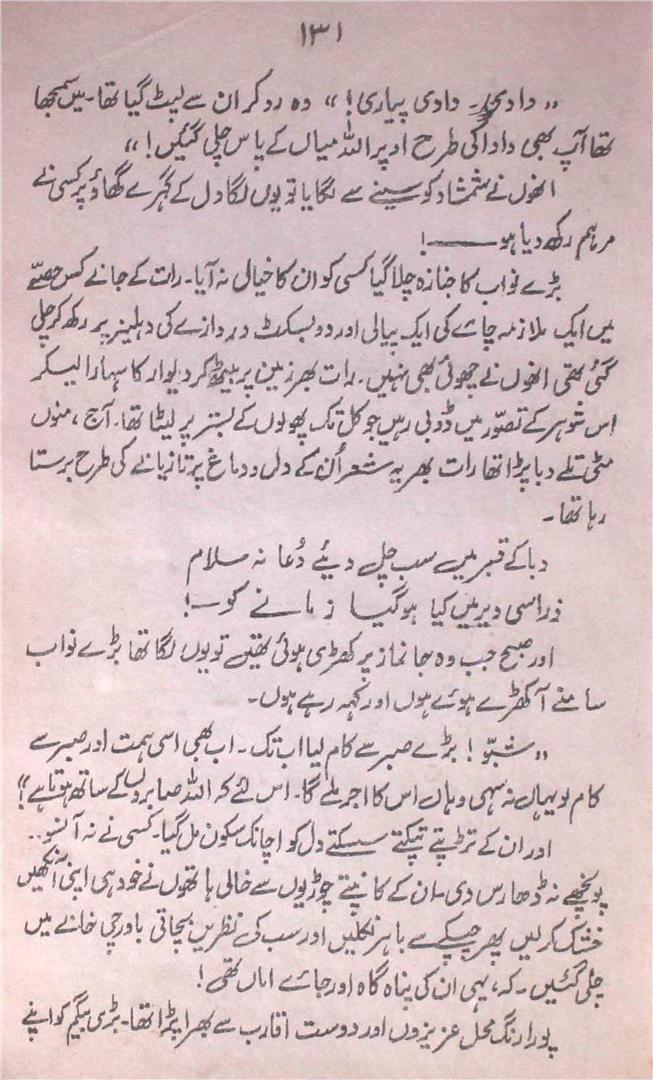 ۱۳۱
” دادی۔ دادی پیاری! “ وہ رو کر ان سے لپٹ گیا تھا۔ میں سمجھا
تھا آپ بھی دادا کی طرح اوپر اللہ میاں کے پاس چلی گئیں! “
انھوں نے شمشاد کو سینے سے لگایا تو یوں لگا دل کے گہرے گھاؤ پر کسی نے
مرہم رکھ دیا ہو ـــــ !
بڑے نواب کا جنازہ چلا گیا کسی کو ان کا خیال نہ آیا۔ رات کے جانے کس حصّے
میں ایک ملازمہ چائے کی ایک پیالی اور دو بسکٹ دروازے کی دہلیز پر رکھ کر چلی
گئی تھی انھوں نے چھوئی بھی نہیں۔ رات بھر زمین پر بیٹھ کر دیوار کا سہارا لیکر
اس شوہر کے تصوّر میں ڈوبی رہیں جو کل تک پھولوں کے بستر پر لیٹا تھا۔ آج ، منوں
مٹی تلے دبا پڑا تھا رات بھر یہ شعر اُن کے دل و دماغ پر تازیانے کی طرح برستا
رہا تھا۔
دبا کے قبر میں سب چل دیئے دُعا نہ سلام
ذرا سی دیر میں کیا ہو گیا زمانے کو ـــ !
اور صبح جب وہ جانماز پر کھڑی ہوئی تھیں تو یوں لگا تھا بڑے نواب
سامنے آ کھڑے ہوئے ہوں اور کہہ رہے ہوں۔
” شبّو ! بڑے صبر سے کام لیا اب تک۔ اب بھی اسی ہمت اور صبر سے
کام لو یہاں نہ سہی وہاں اس کا اجر ملے گا۔ اس لئے کہ اللہ صابروں کے ساتھ ہوتا ہے “
اور ان کے تڑپتے سسکتے دل کو اچانک سکون مل گیا۔ کسی نے نہ آنسو..
پونچھے نہ ڈھارس دی۔ ان کے کانپتے چوڑیوں سے خالی ہاتھوں نے خود ہی اپنی آنکھیں
خشک کر لیں پھر چپکے سے باہر نکلیں اور سب کی نظریں بچاتی باورچی خانے میں
چلی گئیں۔ کہ ، یہی ان کی پناہ گاہ اور جائے اماں تھی !
پورا رنگ محل عزیزوں اور دوست اقارب سے بھرا پڑا تھا۔ بڑی بیگم کو اپنے